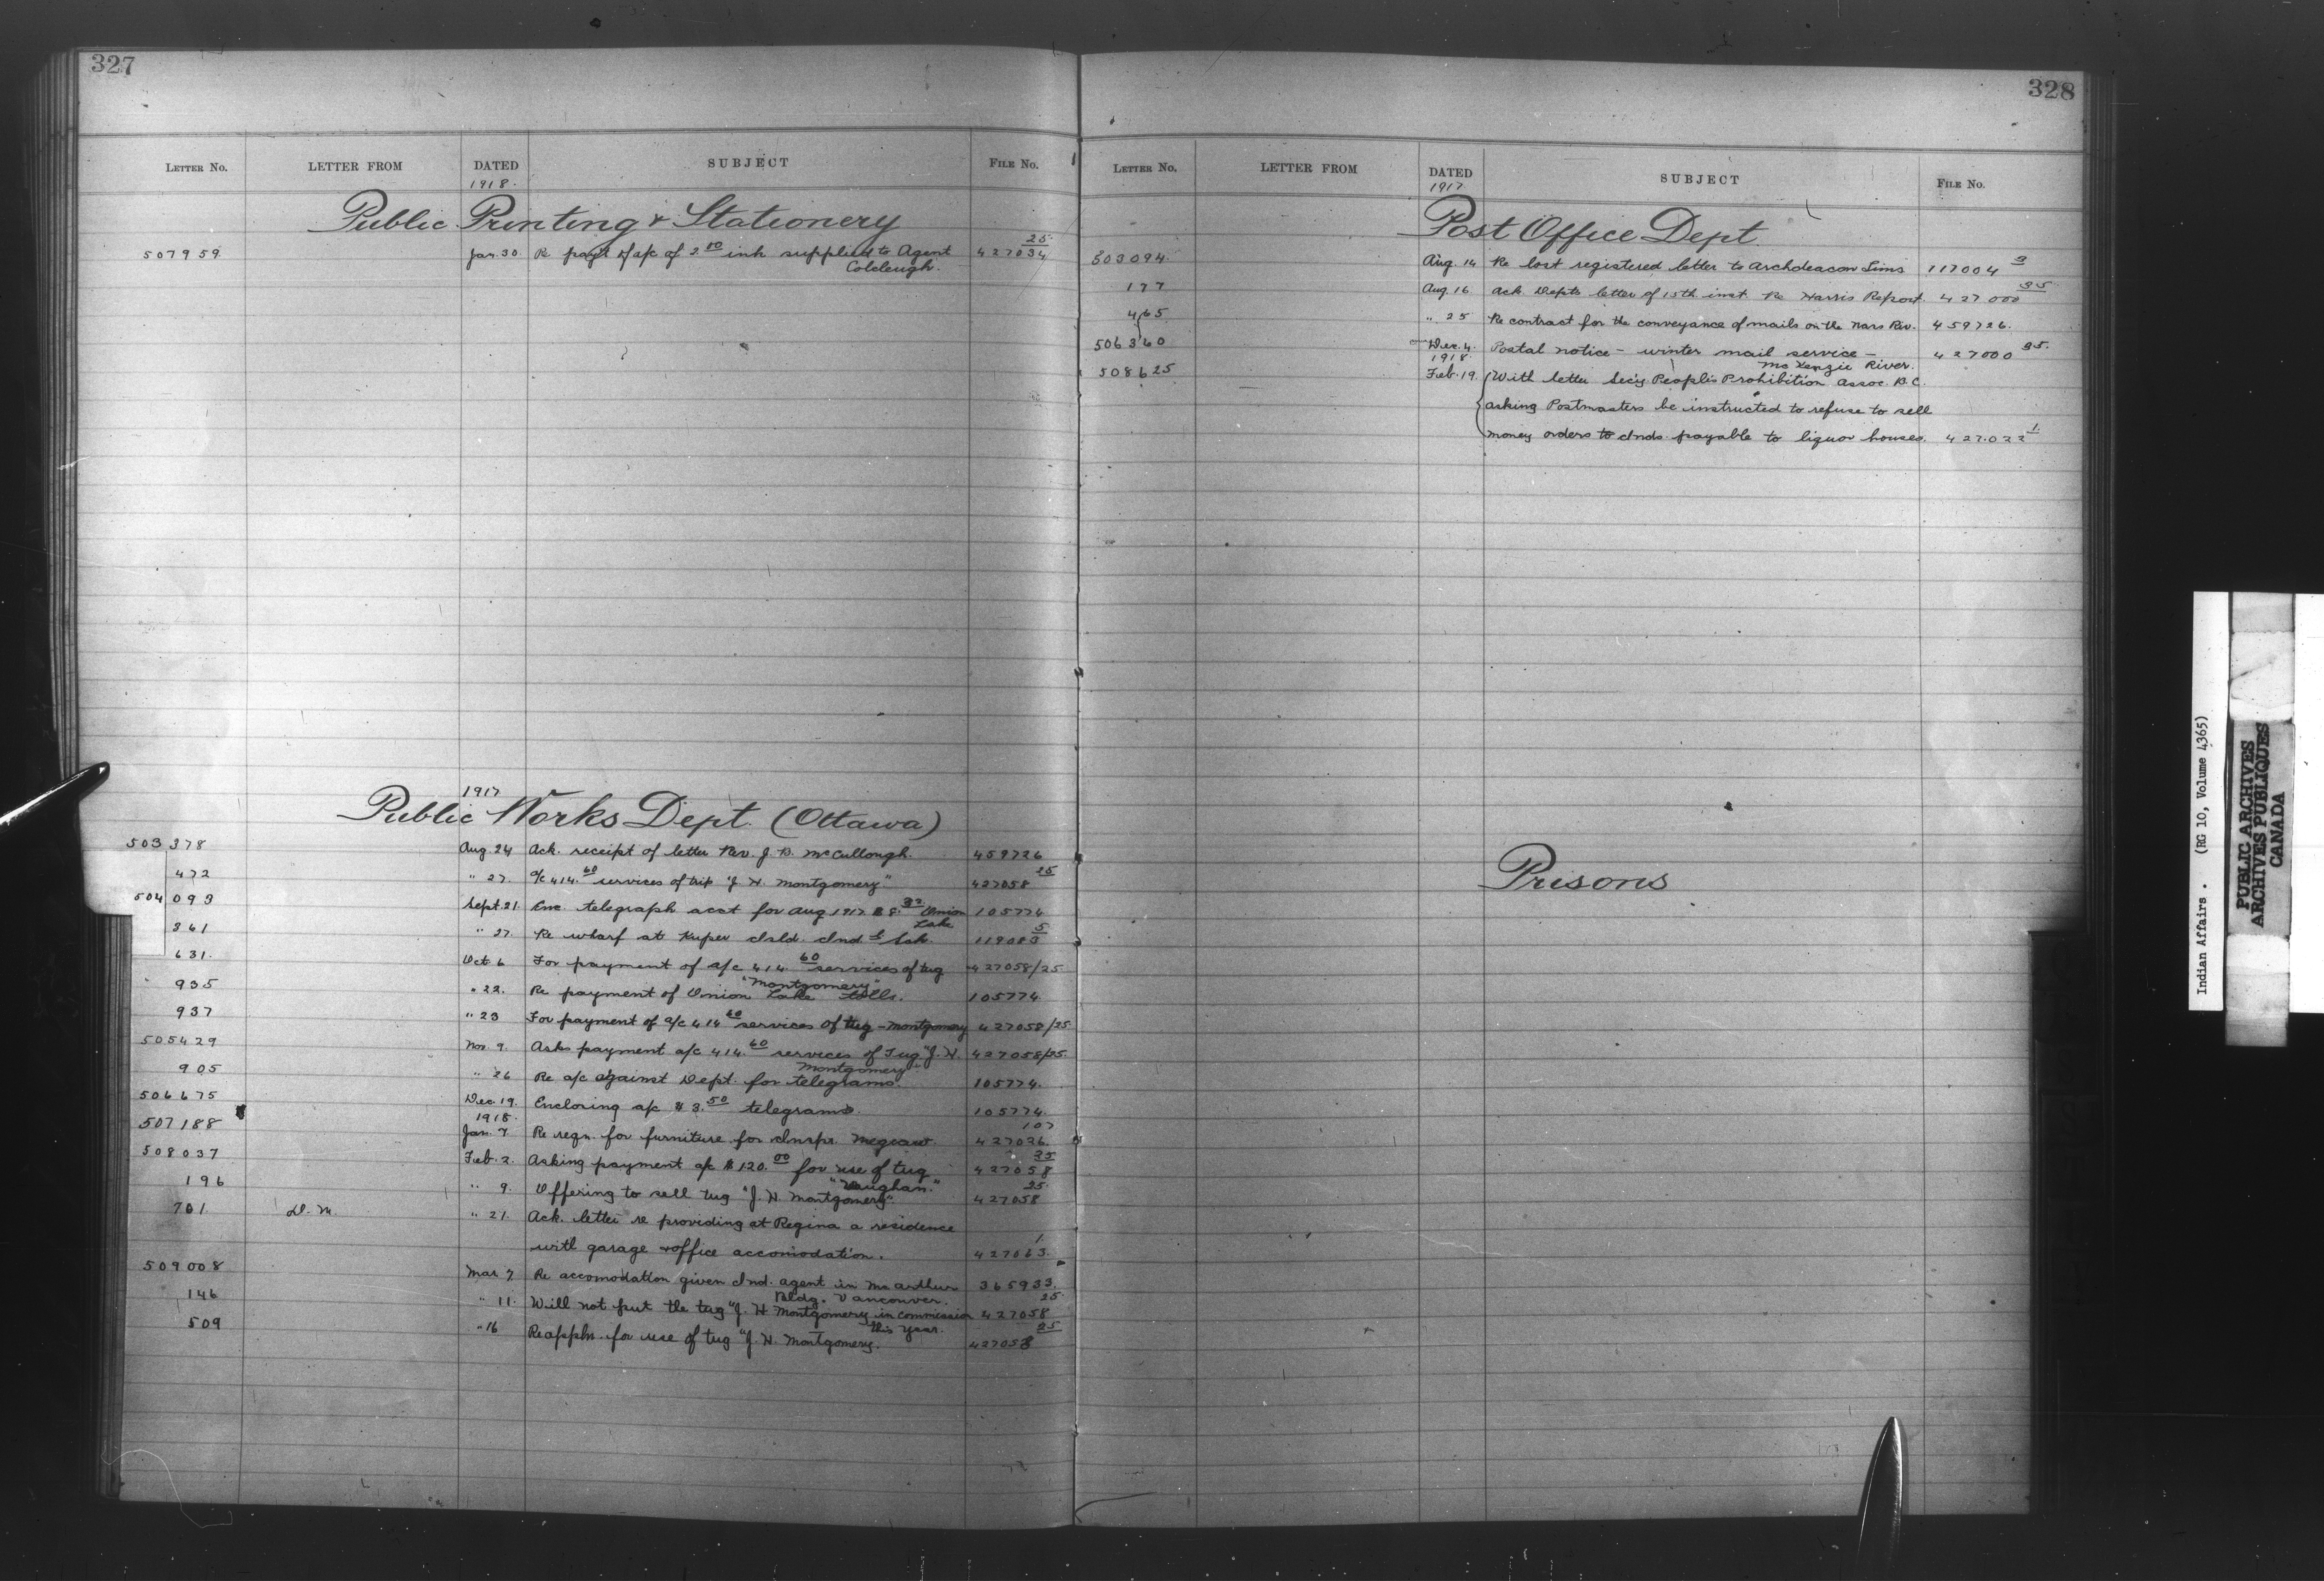 327
LETTER NO. LETTER FROM DATED SUBJECT FILE NO.
1918.
Public Printing & Stationery
507959 Jan. 30. Re payt of a/c of 2.50 ink supplied to Agent 427034 25
Colcleugh.
1917
Public Works Dept. (Ottawa)
503378 Aug 24 Ack. receipt of letter Rev. J. B. McCullough. 459726
472 " 27. a/c 414.60 services of trip "J. H. Montgomery" 427058 25
504093 Sept. 21. Enc. telegraph acct for Aug 1917 $8.32 Union 105774
Lake
361 " 27. Re wharf at Kuper Isld. Ind. Sch. 119083 5
631. Oct. 6 For payment of a/c 414.60 services of tug 427058/25
"Montgomery"
935 " 22. Re payment of Union Lake tolls. 105774
937 " 23 For payment of a/c 414 60 services of tug - Montgomery 427058/25
505429 Nov. 9. Asks payment a/c 414.60 services of Tug "J. H. 427058/25.
Montgomery"
905 " 26 Re a/c against Dept. for telegrams. 105774.
506675 Dec. 19. Enclosing a/c $3.50 telegrams. 105774.
1918.
507188 Jan. 7 Re reqn. for furniture for Inspr. Megraw. 427026. 107
508037 Feb. 2. Asking payment a/c $120.00 for use of tug 427058 25
"Vaughan."
196 " 9. Offering to sell tug "J. H. Montgomery". 427058 25.
701 D. M " 21. Ack. letter re providing at Regina a residence
with garage & office accomodation. 427063. 1.
509008 Mar 7 Re accomodation given Ind. agent in McArthur 365933.
Bldg. Vancouver.
146 " 11. Will not put the tug "J. H Montgomery in commission 427058 25.
this year.
509 " 16 Re appln. for use of tug "J. H. Montgomery. 427058 25
328
LETTER NO. LETTER FROM DATED SUBJECT FILE NO.
1917
Post Office Dept
503094. Aug. 14 Re lost registered letter to Archdeacon Sims 117004 3
177 Aug. 16 Ack. Depts letter of 15th inst. Re Harris Report. 427000 35
465 " 25 Re contract for the conveyance of mails on the Nars Riv. 459726.
506360 Dec. 4. Postal notice - winter mail service - 427000 35.
1918. McKenzie River.
508625 Feb. 19. With letter Secy. People's Prohibition Assoc. B.C.
asking Postmasters be instructed to refuse to sell
money orders to Inds. payable to liquor houses. 427.022 1.
Prisons
Indian Affairs. (RG 10, Volume 4365)
PUBLIC ARCHIVES
ARCHIVES PUBLIQUES
CANADA